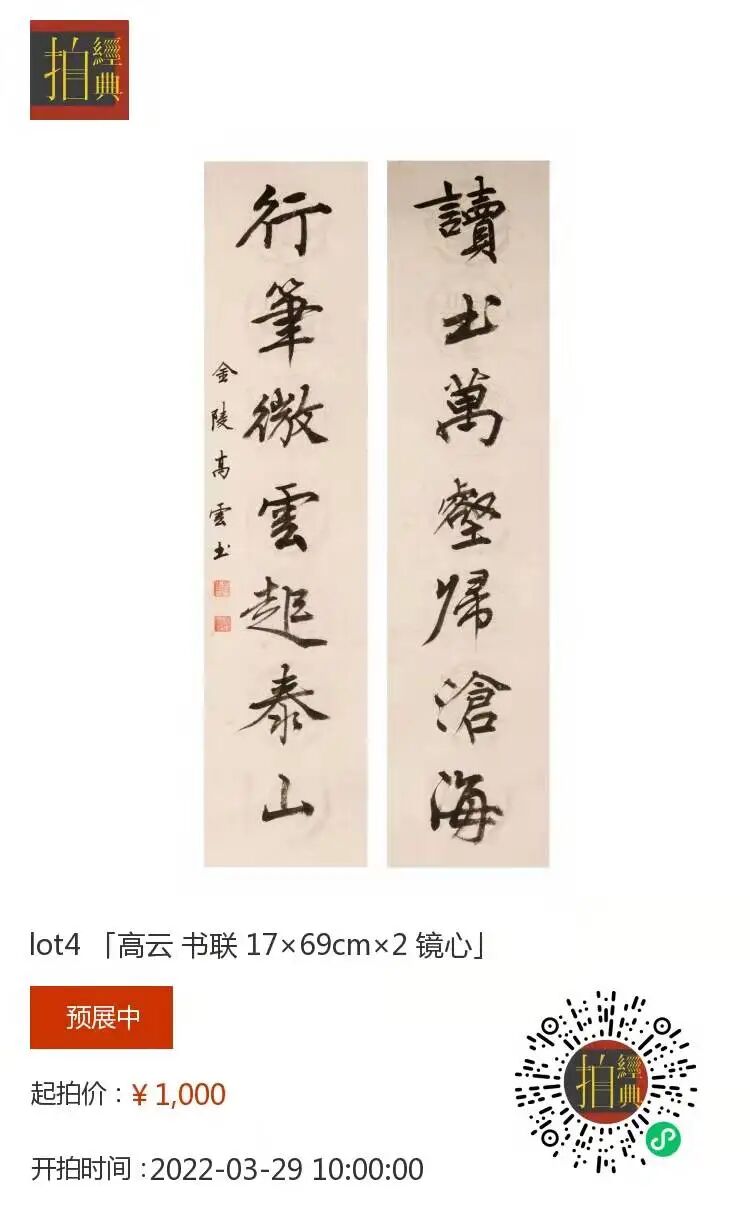 拍經典
讀書萬壑歸滄海
行筆微雲起泰山
金陵高雲书
lot4 「高云 书联 17×69cm×2 镜心」
预展中
起拍价：¥ 1,000
开拍时间 :2022-03-29 10:00:00
拍經典